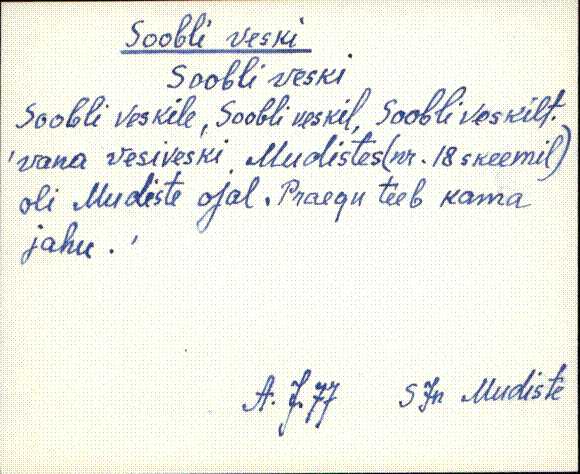 Soobli veski
Soobli veski
Soobli veskile, Soobli veskil, Soobli veskilt.
'vana vesiveski Mudistes (nr. 18 skeemil)
oli Mudiste ojal. Praegu teeb kama
jahu.'
A. J. 77 SJn Mudiste